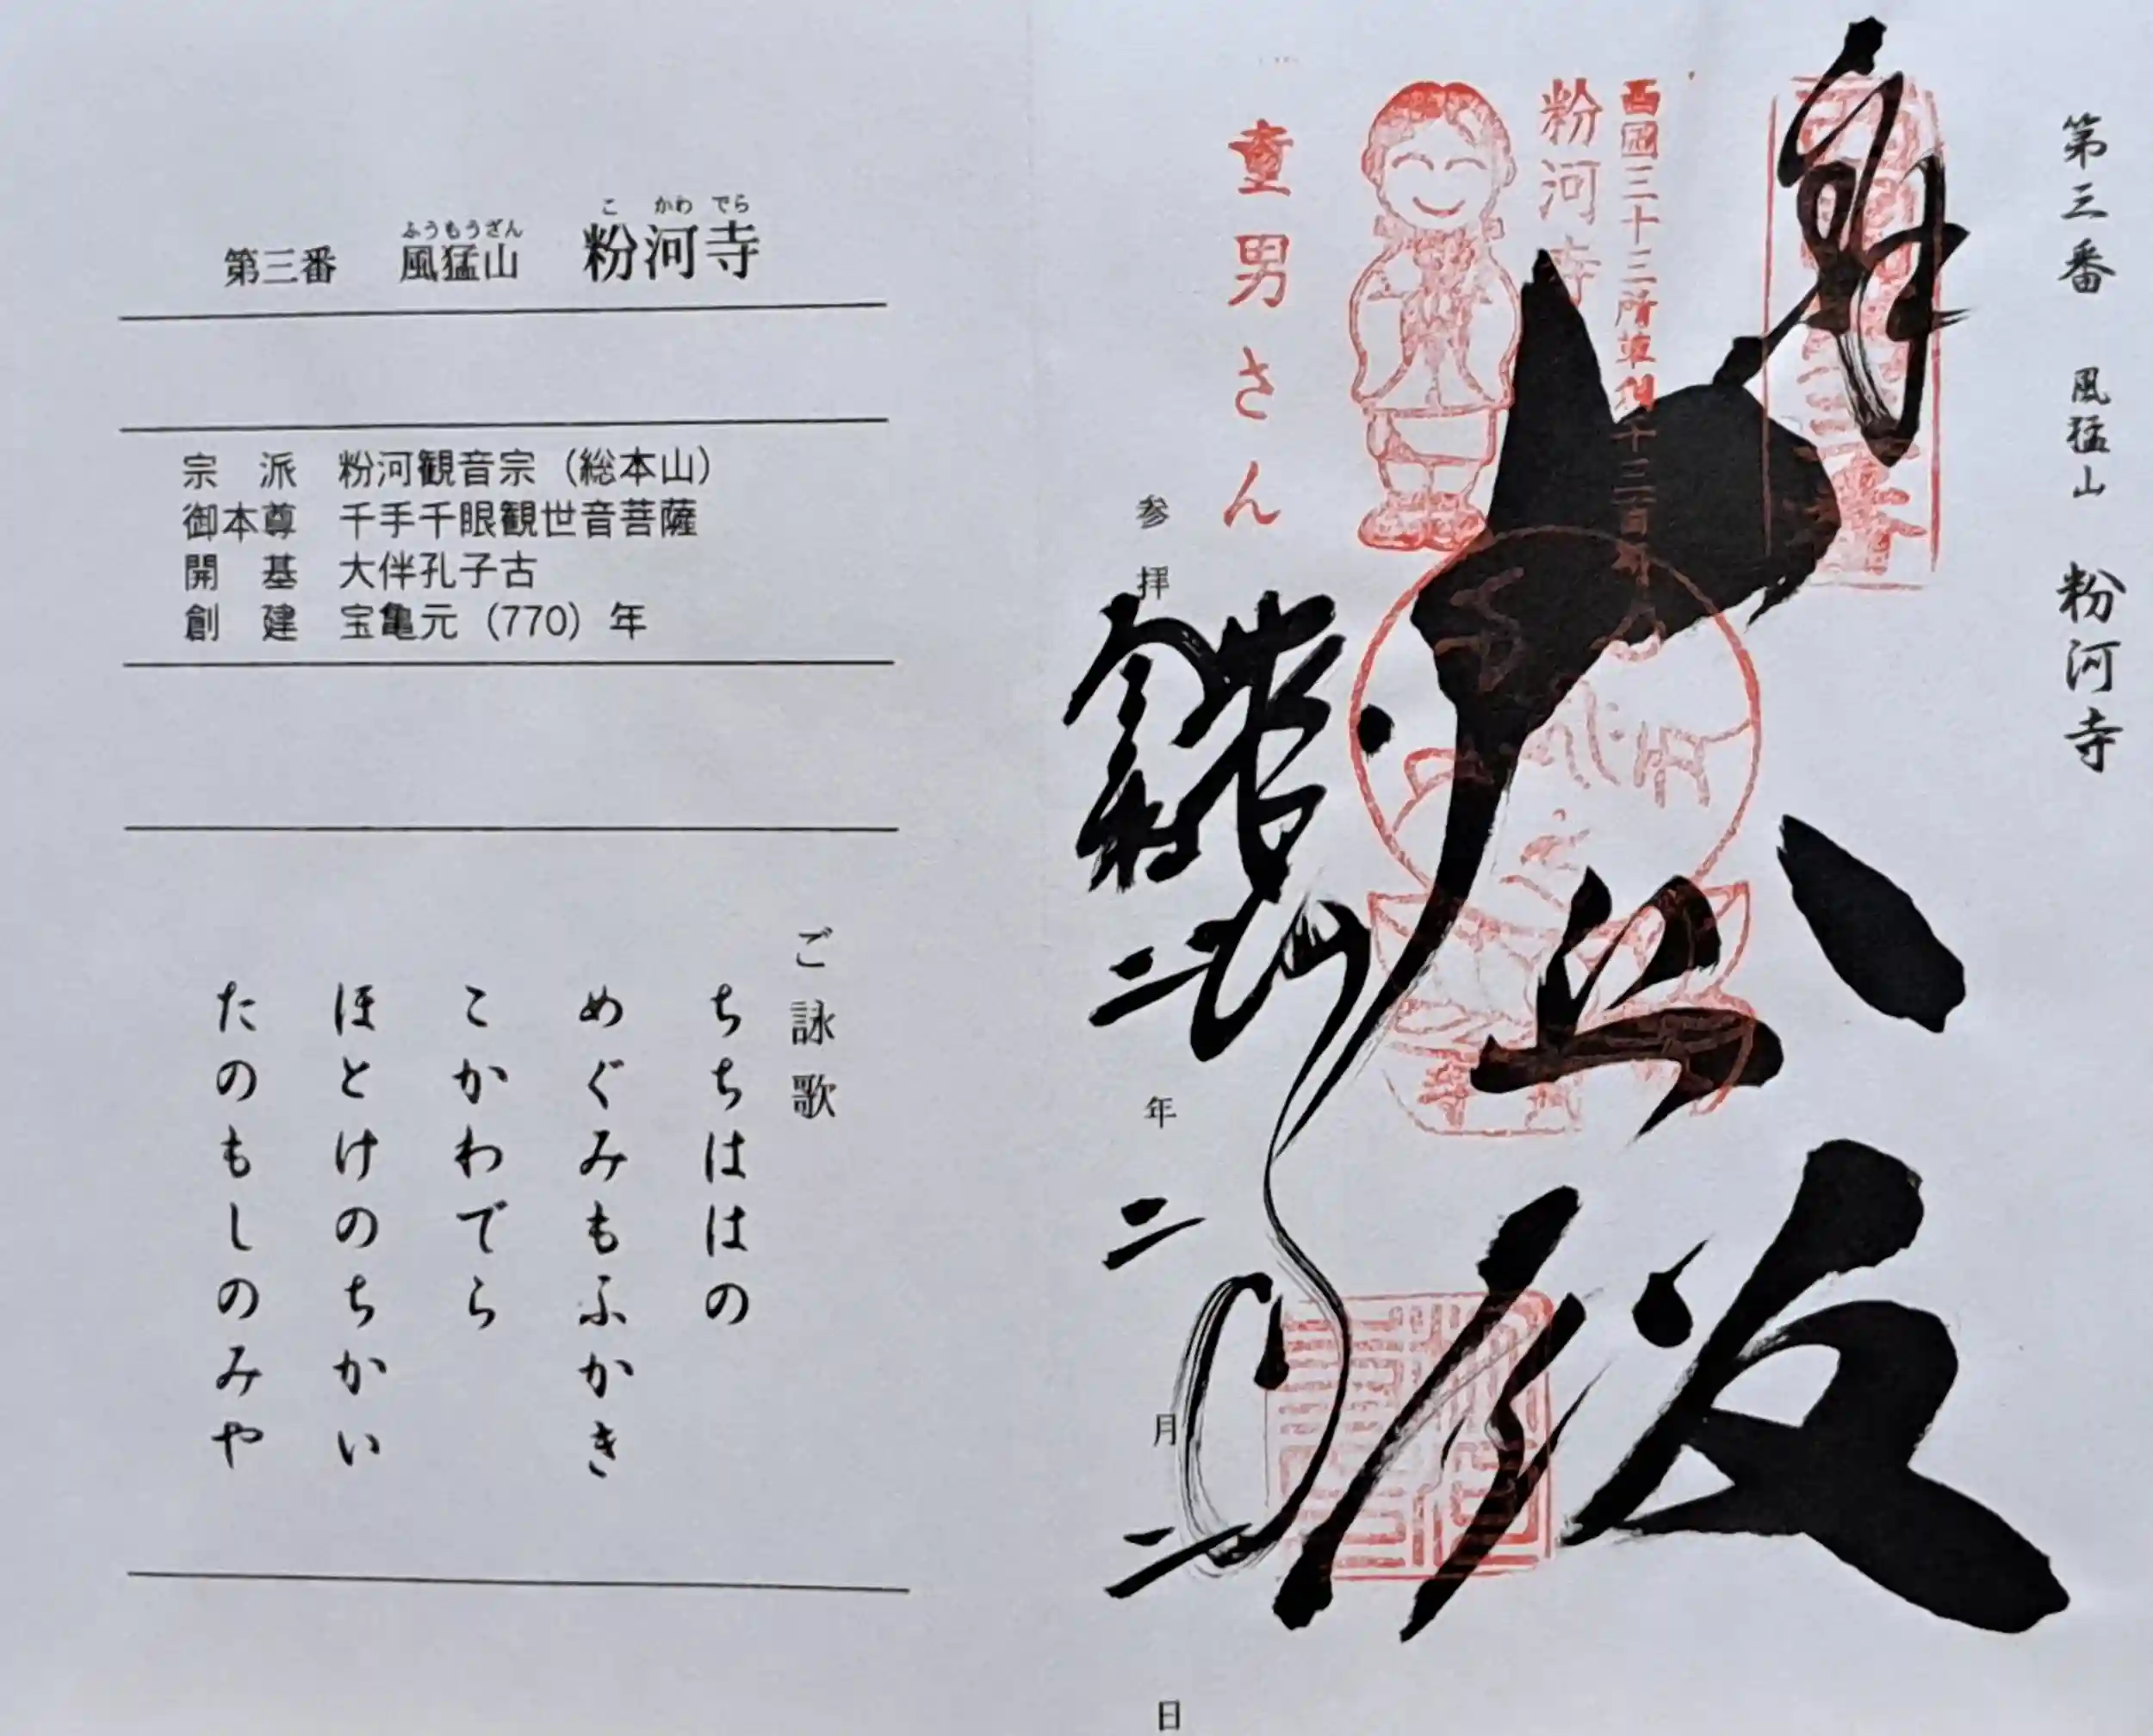 第三番 風猛山 粉河寺
奉拝
西國三十三所草創千三百年
粉河寺
童男さん
大悲殿
参拝 二年 二月 二日
こ かわ でら
ふうもうざん
第三番 風猛山 粉河寺
宗 派 粉河観音宗（総本山）
御本尊 千手千眼観世音菩薩
開 基 大伴孔子古
創 建 宝亀元（770）年
ご詠歌
ちちははの
めぐみもふかき
こかわでら
ほとけのちかい
たのもしのみや